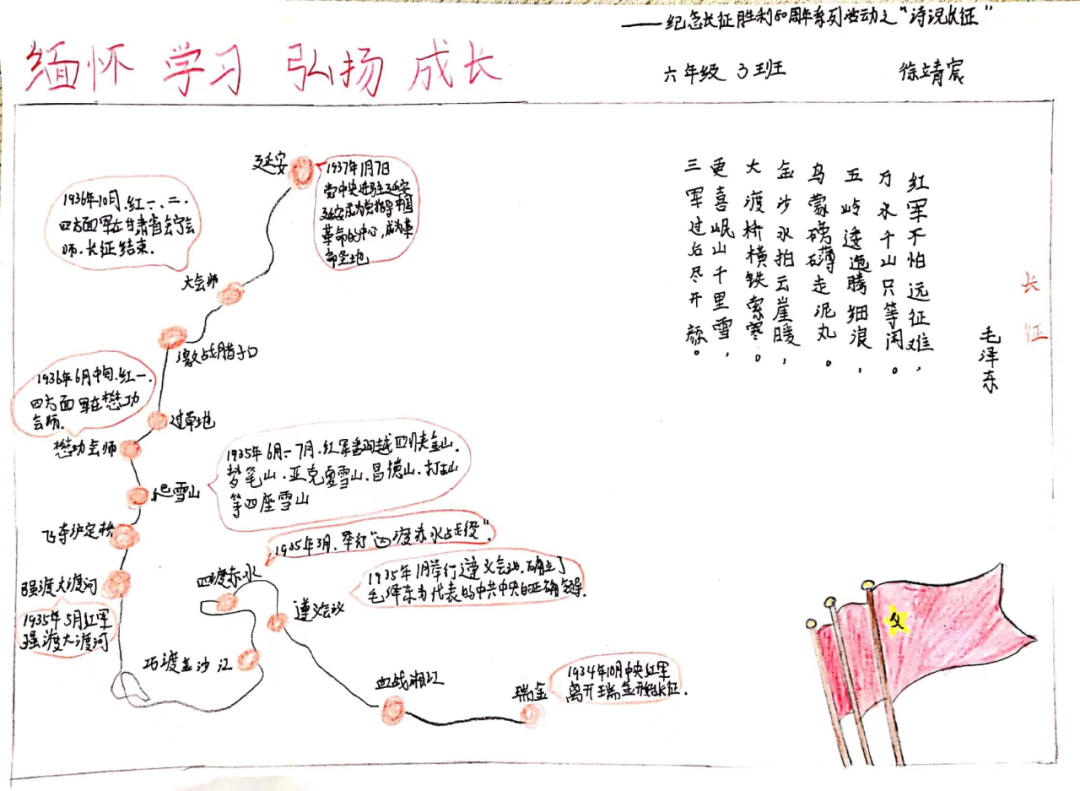 ——纪念长征胜利80周年系列活动之“诗说长征”
缅怀 学习 弘扬 成长
六年级 3班 徐靖宸
延安
1937年1月7日
党中央进驻延安
延安成为党指导中国
革命的中心,成为革
命圣地
1936年10月.红一、二.
四方面军在甘肃省会宁会
师.长征结束.
大会师
激战腊子口
1936年6月中旬.红一.
四方面军在懋功
会师.
过草地
懋功会师
1935年6月-7月.红军翻越四川夹金山.
梦笔山.亚克夏雪山.昌德山.打古山
等四座雪山
爬雪山
飞夺泸定桥
1935年3月.举行“四渡赤水战役”.
强渡大渡河
四渡赤水
1935年1月举行遵义会议.确立了
毛泽东为代表的中共中央的正确领导.
遵义会议
1935年5月红军
强渡大渡河
巧渡金沙江
血战湘江
瑞金
1934年10月中央红军
离开瑞金开始长征.
长征
毛泽东
红军不怕远征难,
万水千山只等闲。
五岭逶迤腾细浪,
乌蒙磅礴走泥丸。
金沙水拍云崖暖,
大渡桥横铁索寒。
更喜岷山千里雪,
三军过后尽开颜。